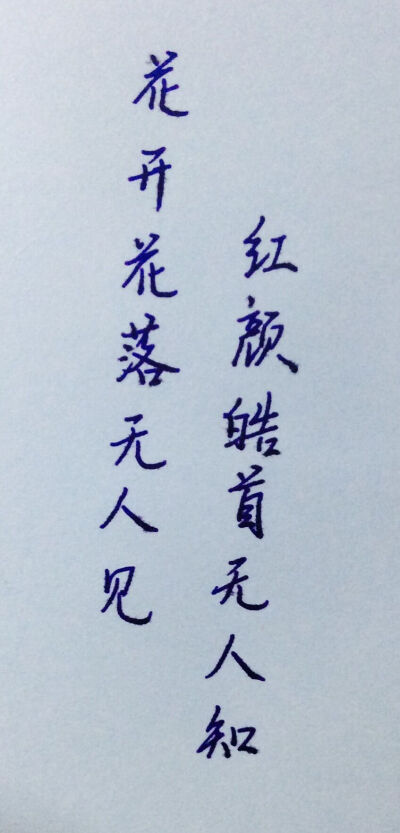 花开花落无人见
红颜皓首无人知